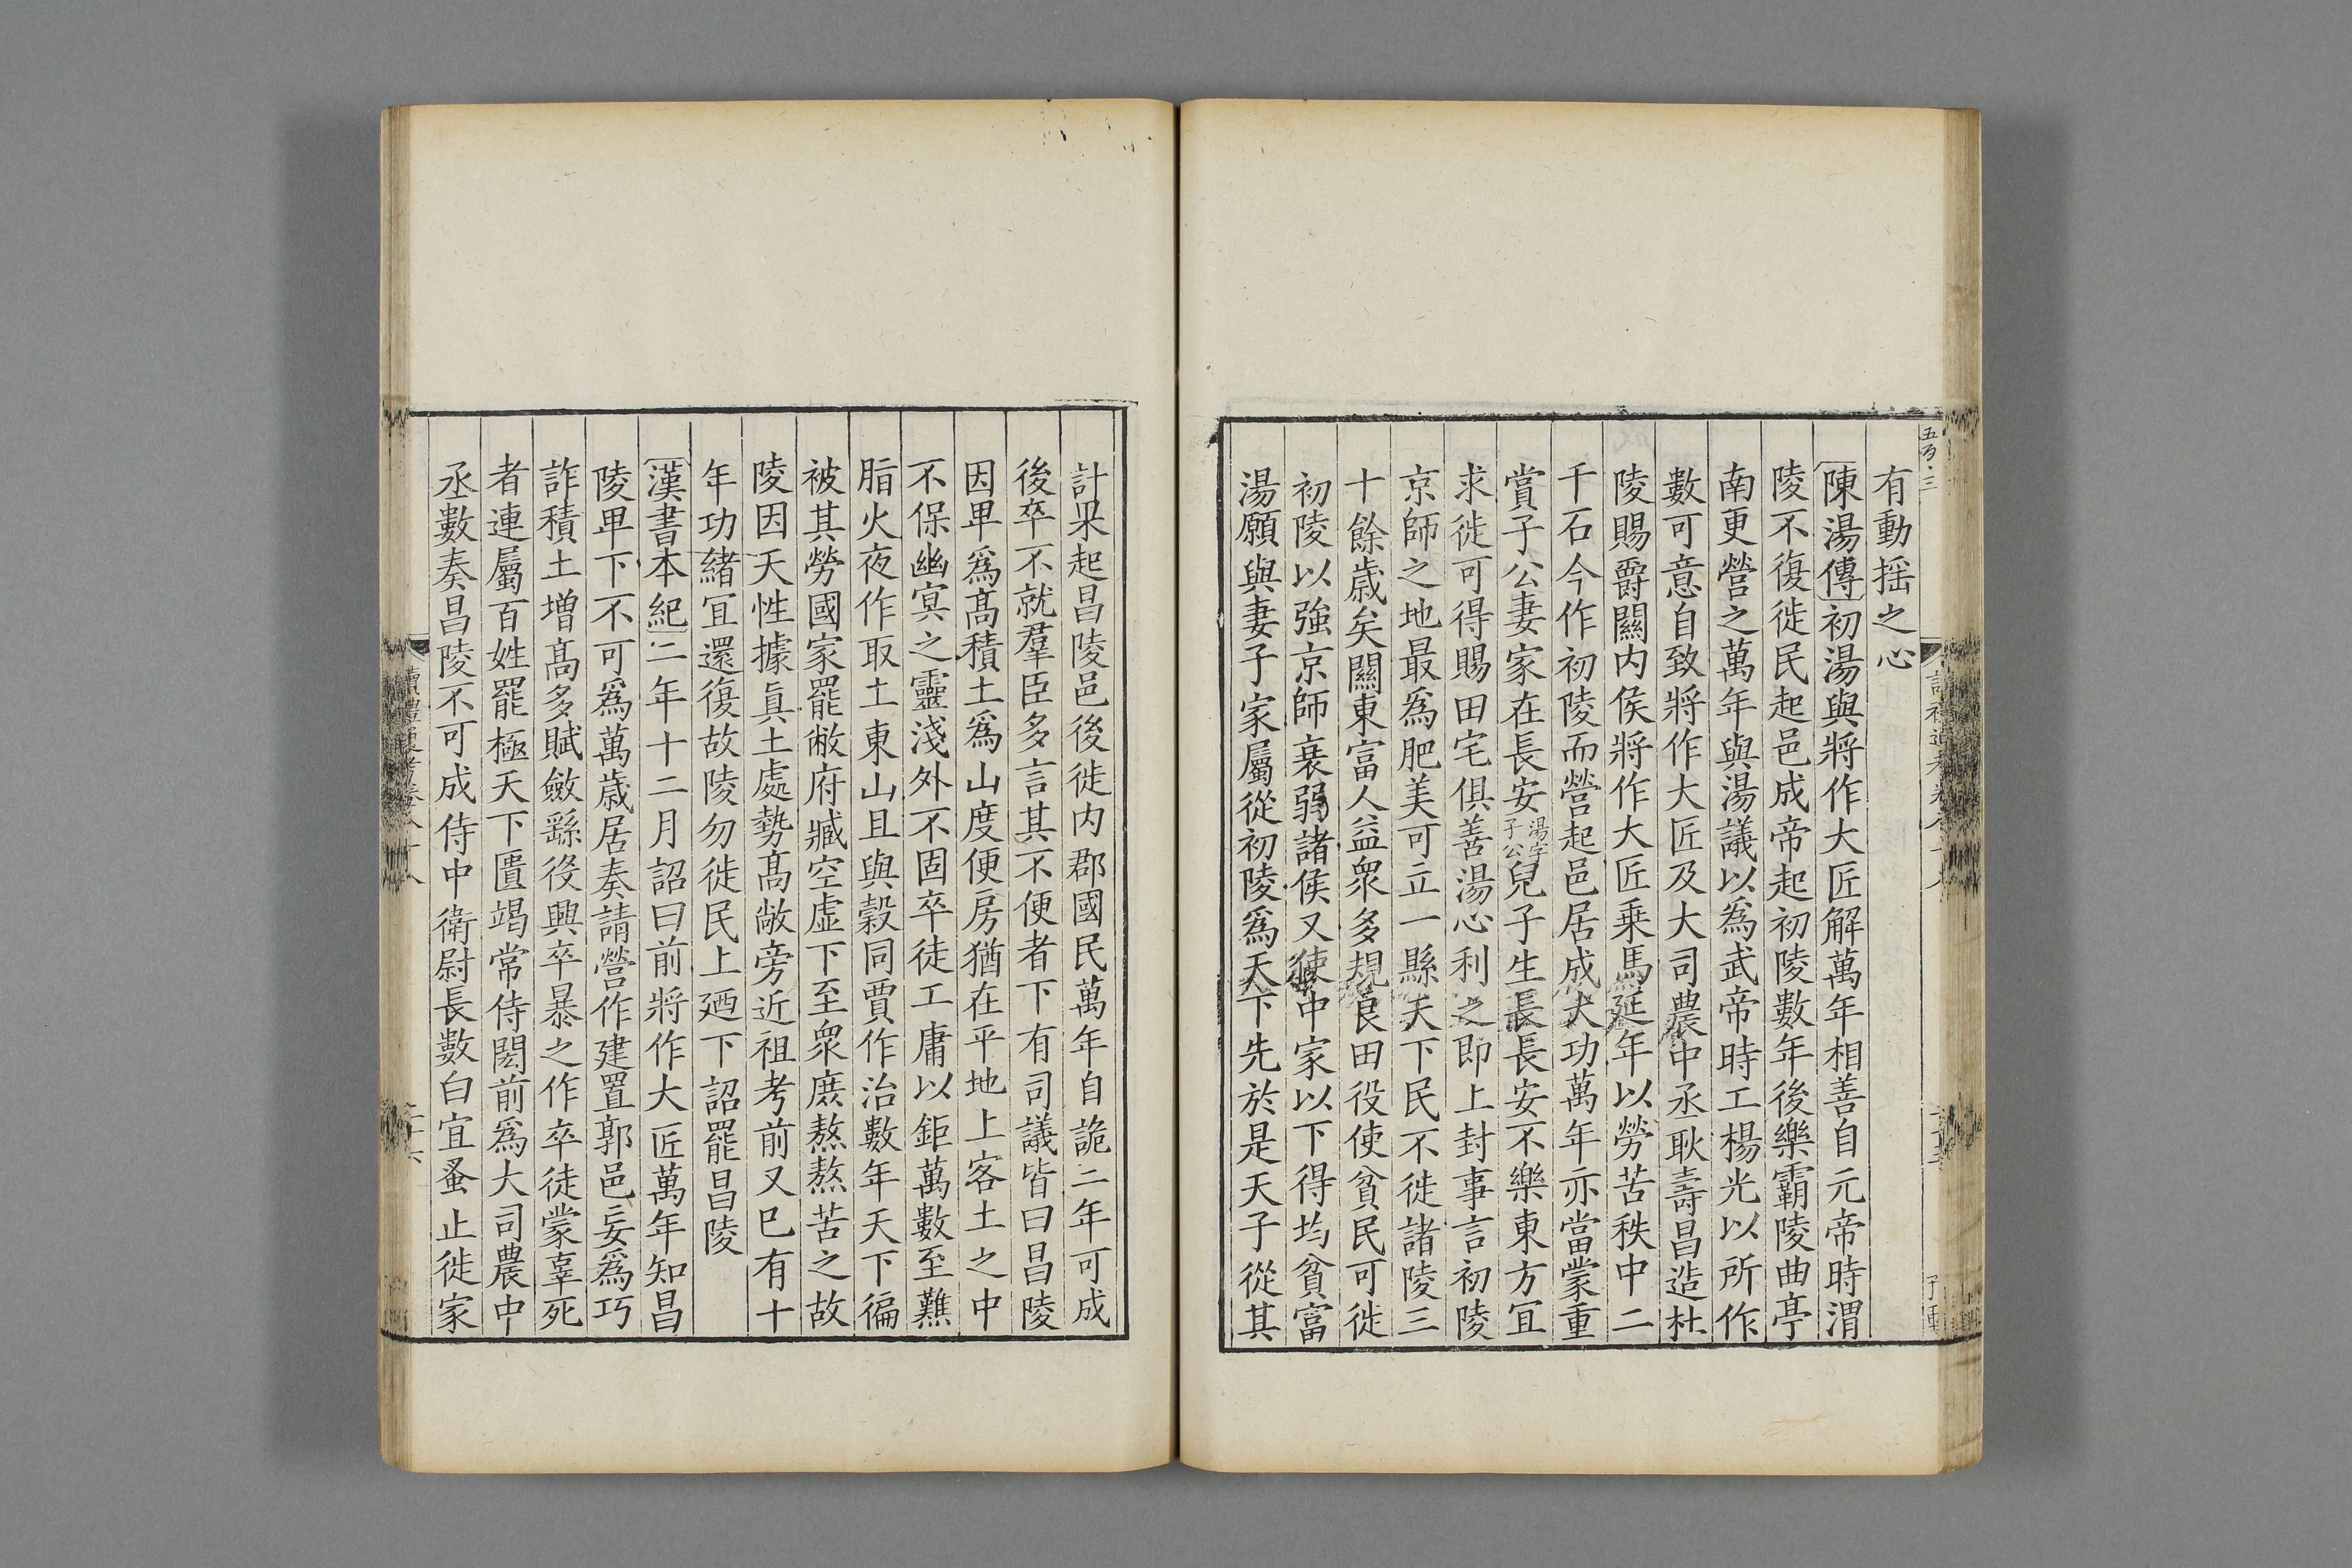 有動揺之心
陳湯傳初湯與將作大匠解萬年相善自元帝時渭
陵不復徙民起邑成帝起初陵數年後樂霸陵曲亭
南更營之萬年與湯議以爲武帝時工楊光以所作
數可意自致將作大匠及大司農中丞耿壽昌造杜
陵賜爵關内侯將作大匠乗馬延年以勞苦秩中二
千石今作初陵而營起邑居成大功萬年亦當蒙重
賞子公妻家在長安湯字子公兒子生長長安不樂東方宜
求徙可得賜田宅俱善湯心利之即上封事言初陵
京師之地最爲肥美可立一縣夫下民不徙諸陵三
十餘歳矣關東富人益衆多規良田役使貧民可徙
初陵以強京師衰弱諸侯又使中家以下得均貧富
湯願與妻子家屬從初陵爲天下先於是天子從其
計果起昌陵邑後徙内郡國民萬年自詭三年可成
後卒不就羣臣多言其不便者下有司議皆曰昌陵
因卑爲髙積土爲山度便房猶在平地上客土之中
不保幽冥之靈淺外不固卒徒工庸以鉅萬數至𤎅
脂火夜作取土東山且與穀同賈作治數年天下徧
被其勞國家罷敝府臧空虚下至衆庶熬熬苦之故
陵因天性據眞土處勢髙敞旁近祖考前又已有十
年功緒宜還復故陵勿徙民上廼下詔罷昌陵
漢書本紀二年十二月詔曰前將作大匠萬年知昌
陵卑下不可爲萬歳居奏請營作建置郭邑妄爲巧
詐積土増髙多賦斂繇役興卒暴之作卒徒蒙辜死
者連屬百姓罷極天下匱竭常侍閎前爲大司農中
丞數奏昌陵不可成侍中衛尉長數白宜蚤止徙家
讀禮通考卷八十八